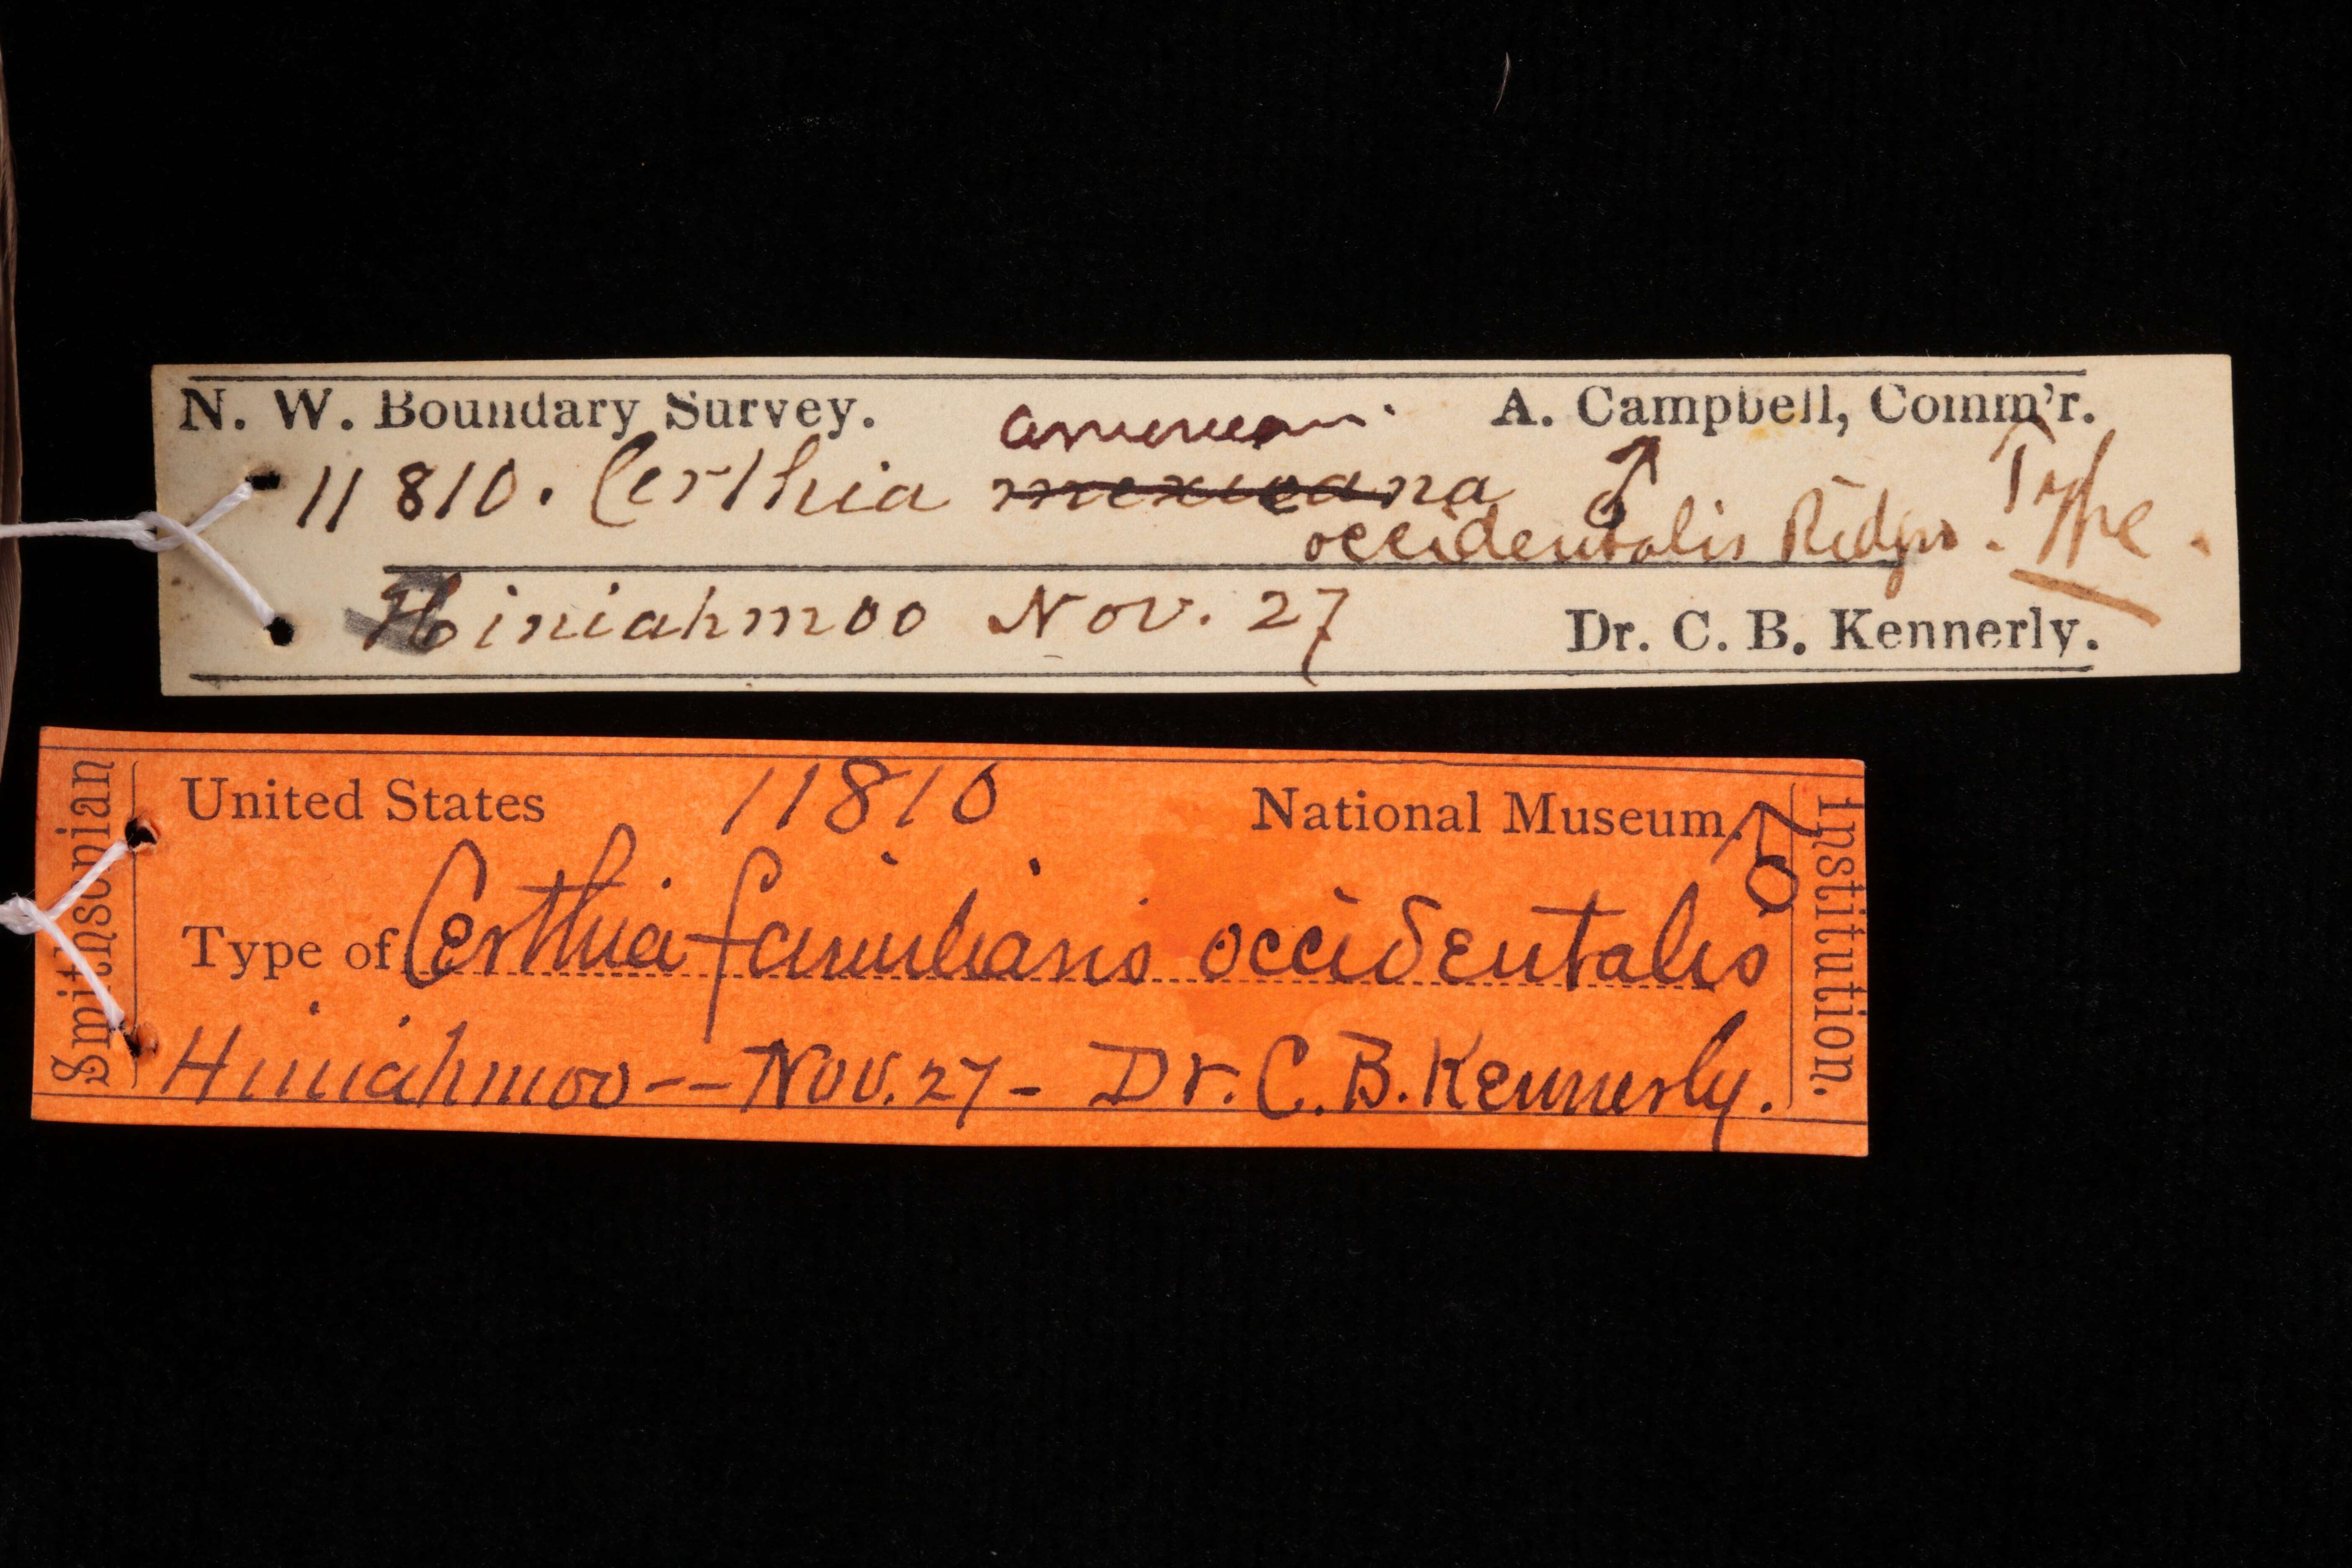 N. W. Boundary Survey. A. Campbell, Comm'r.
american
11810. Certhia mexicana ♂
occidentalis Ridgw. Type.
Hiniahmoo Nov. 27 Dr. C. B. Kennerly.
Smithsonian
United States 11810 National Museum. ♂
Type of Certhia familiaris occidentalis
Hiniahmoo -- Nov. 27 - Dr. C. B. Kennerly.
Institution.